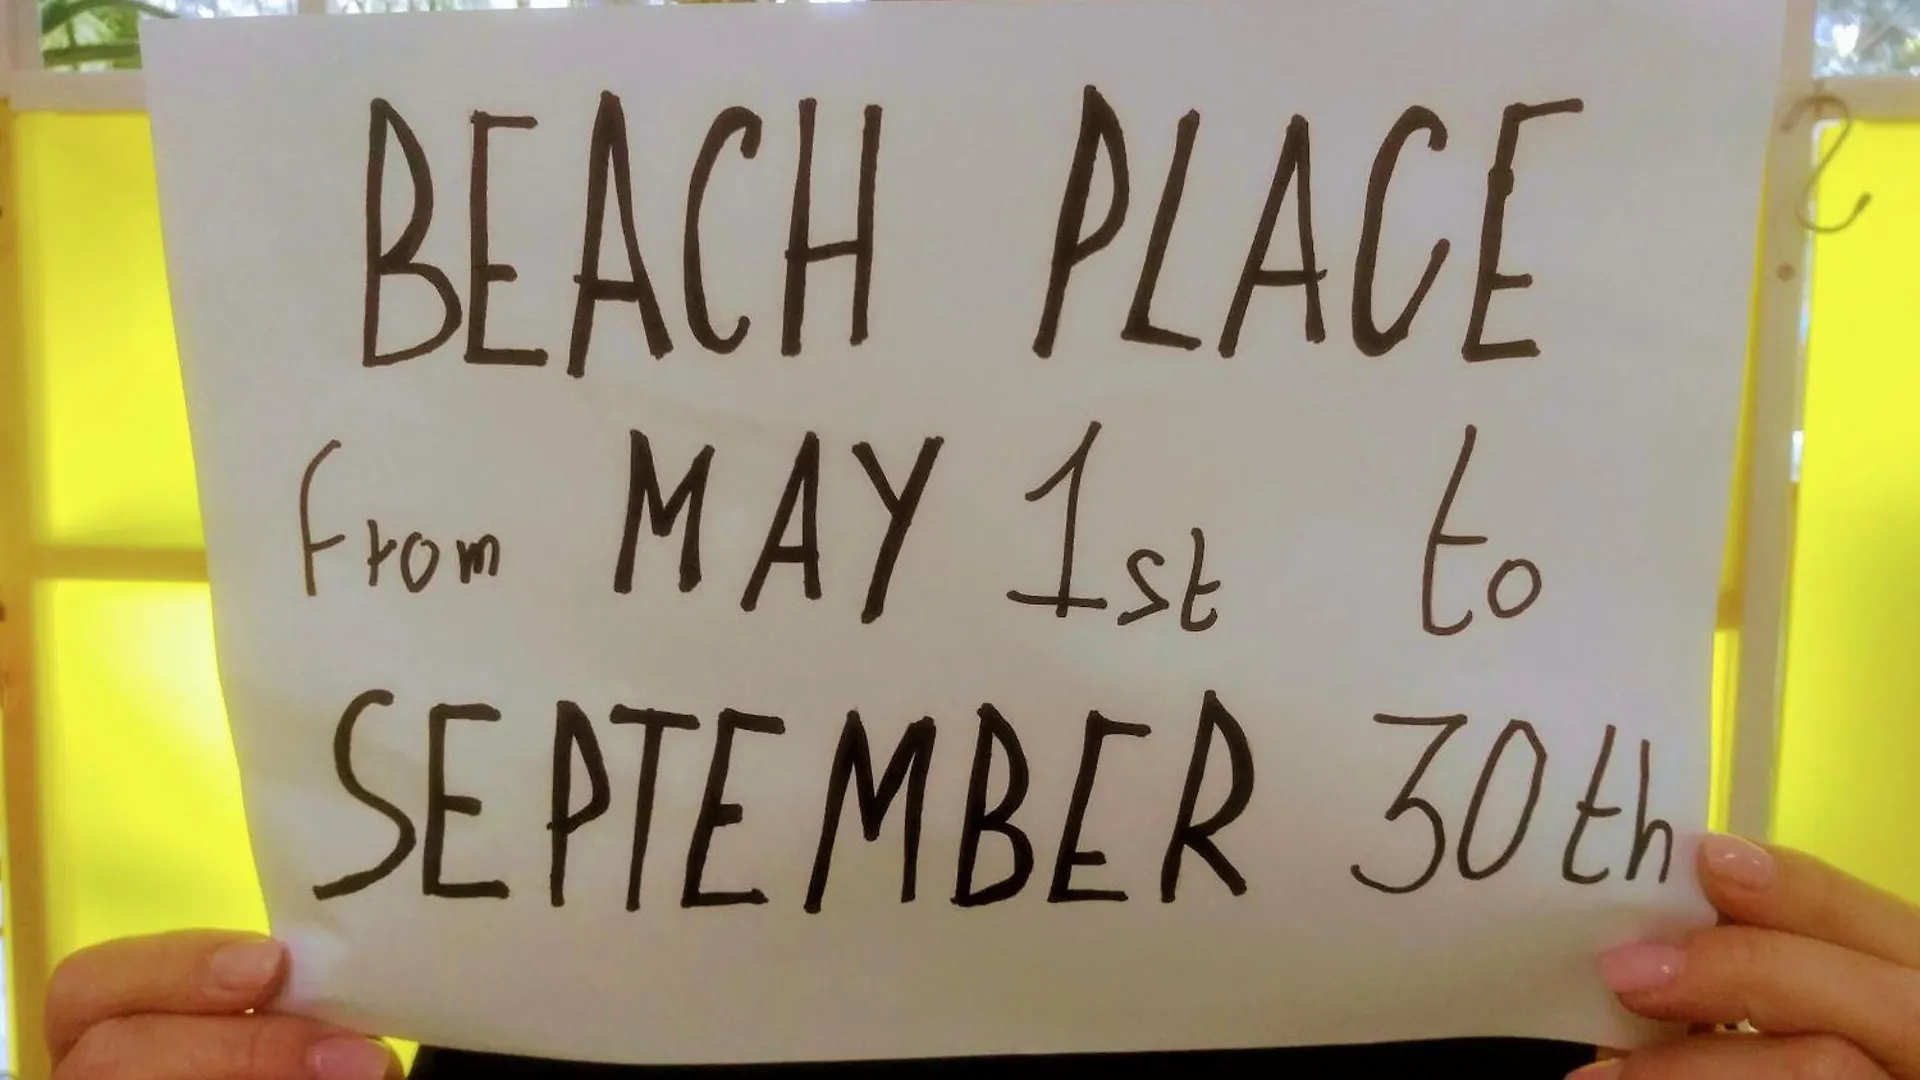 BEACH PLACE
from MAY 1st to
SEPTEMBER 30th